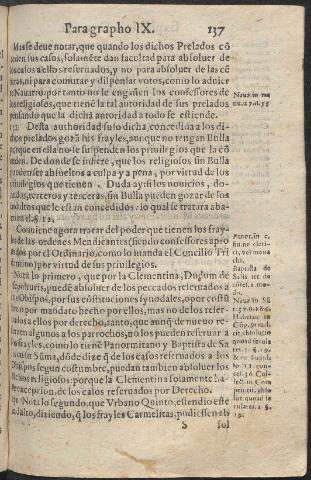 Paragrapho IX. 137
Mas se deue notar, que quando los dichos Prelados cō
den sus casos, solamēte dan facultad para absoluer de
los casos a ellos reseruados, y no para absoluer de las cē
ras, ni para comutar y dispensar votos, como lo aduier
Nauarro: por tanto no le engañen los confessores de
los religiosos, que tiene la tal autoridad de sus prelados
pensando que la dicha autoridad a todo se estiende.
Desta authoridad suso dicha, concedida a los di-
chos prelados gozā his frayles, aun que no tengan Bulla
que en ella no se suspenden los priuilegios que la cō
De donde se infiere, que los religiosos sin Bulla
pueden ser absueltos a culpa y a pena, por virtud de los
priuilegios que tienen. Duda ay: si los nouicios, do-
nados, terceros y terceras, sin Bulla pueden gozar de los
indultos que le estan concedidos: lo qual se tratara aba-
el. §. 12.
Conuiene agora tratar del poder que tienen los fray-
les de las ordenes Mendicantes (siendo confessores apro
ados por el Ordinario, como lo manda el Concilio Tri
dentino) por virtud de sus priuilegios.
Nota lo primero, que por la Clementina, Dudum de
sepulturis, puedē absoluer de los peccados reseruados a
los Obispos, por sus cōstituciones synodales, o por costū
bre o por mandato hecho por ellos, mas no de los reser-
uados a ellos por derecho, tanto, que aunq̄ de nueuo re-
seruen algunos a los parrochos, no los pueden reseruar a
los frayles, como lo tiene Panormitano y Baptista de Sa
en su Sūma, dōde dize q̄ de los casos reseruados a los
Obispos segun costumbre, puedan tambien absoluer los
dichos religiosos: porque la Clementina solamente ha-
ze excepcion, de los casos reseruados por Derecho.
Nota lo segundo, que Vrbano Quinto, estendio este
indulto, diziendo, q̄ los frayles Carmelitas, pudiessen ab
S sol
Naua. in
nu. 27.
Panor. in c.
fin. ne cleri-
ci, vel mona
chi.
Baptista de
Salis. tit. de
cōfes. 2. mo-
do.
Naua. in Sū